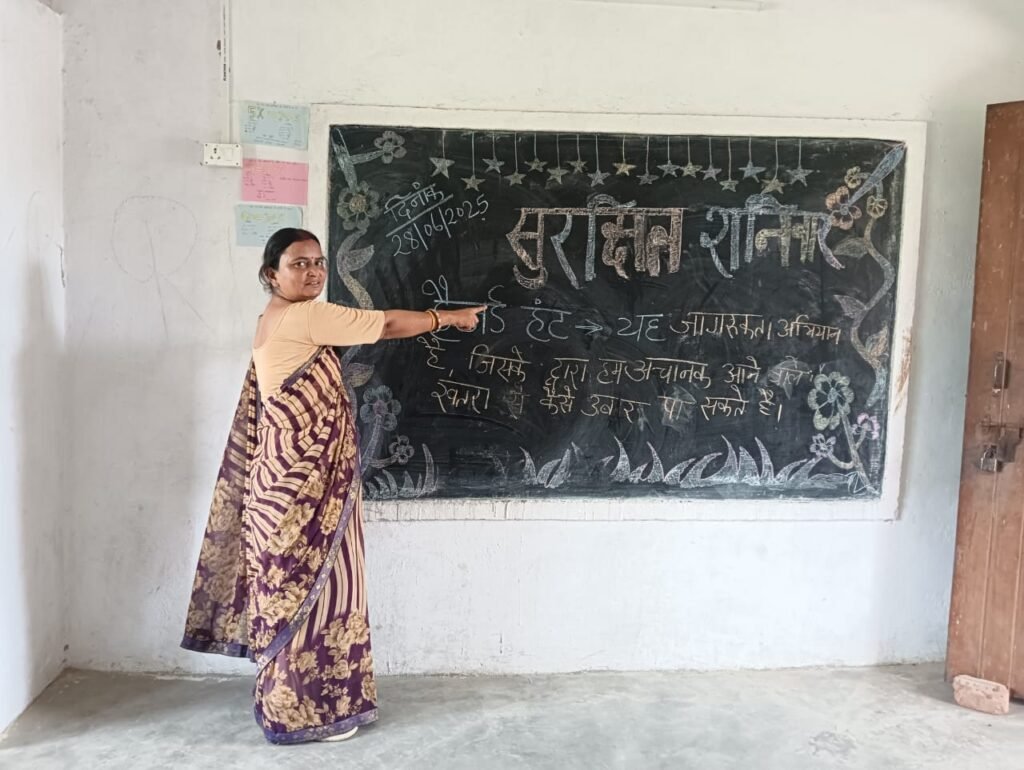 दिनांक
28/06/2025
सुरक्षित शनिवार
हैजार्ड हंट → यह जागरूकता अभियान
है, जिसके द्वारा हम अचानक आने वाले
खतरा से कैसे उबर पा सकते है।
5X